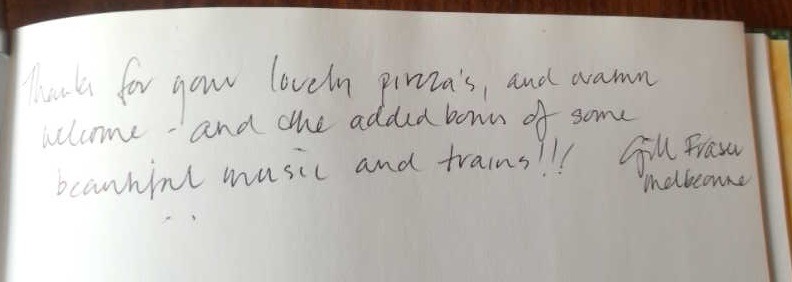 Thanks for your lovely pizza's, and warm
welcome - and the added bonus of some
beautiful music and trains!!! Gill Fraser
Melbourne